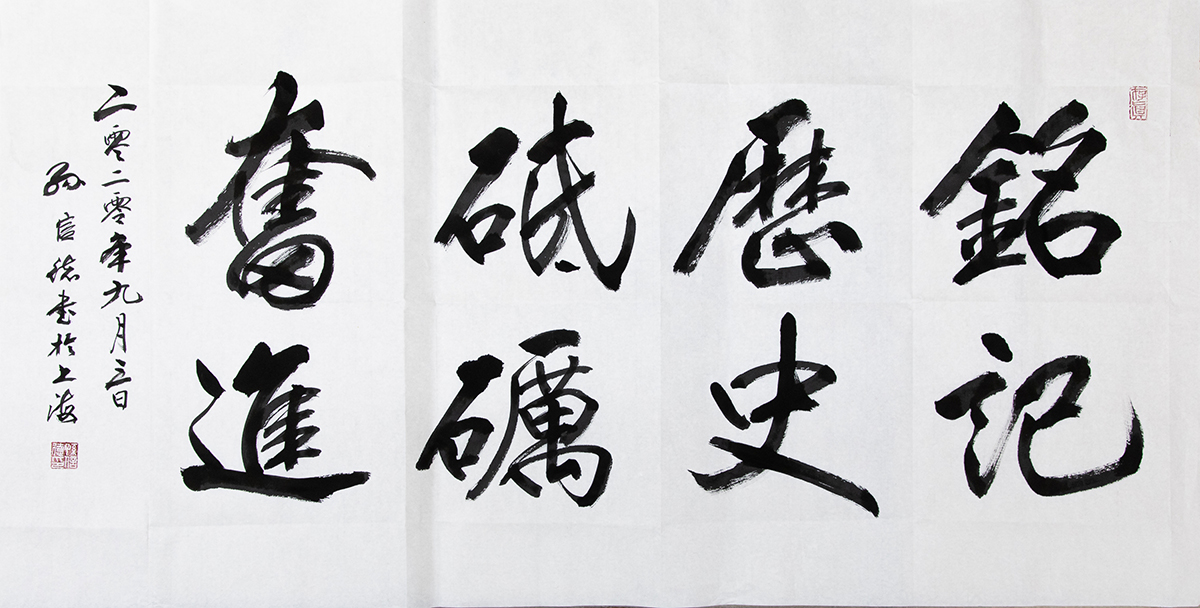 銘記
歷史
砥礪
奮進
二零二零年九月三日
孫信德書於上海